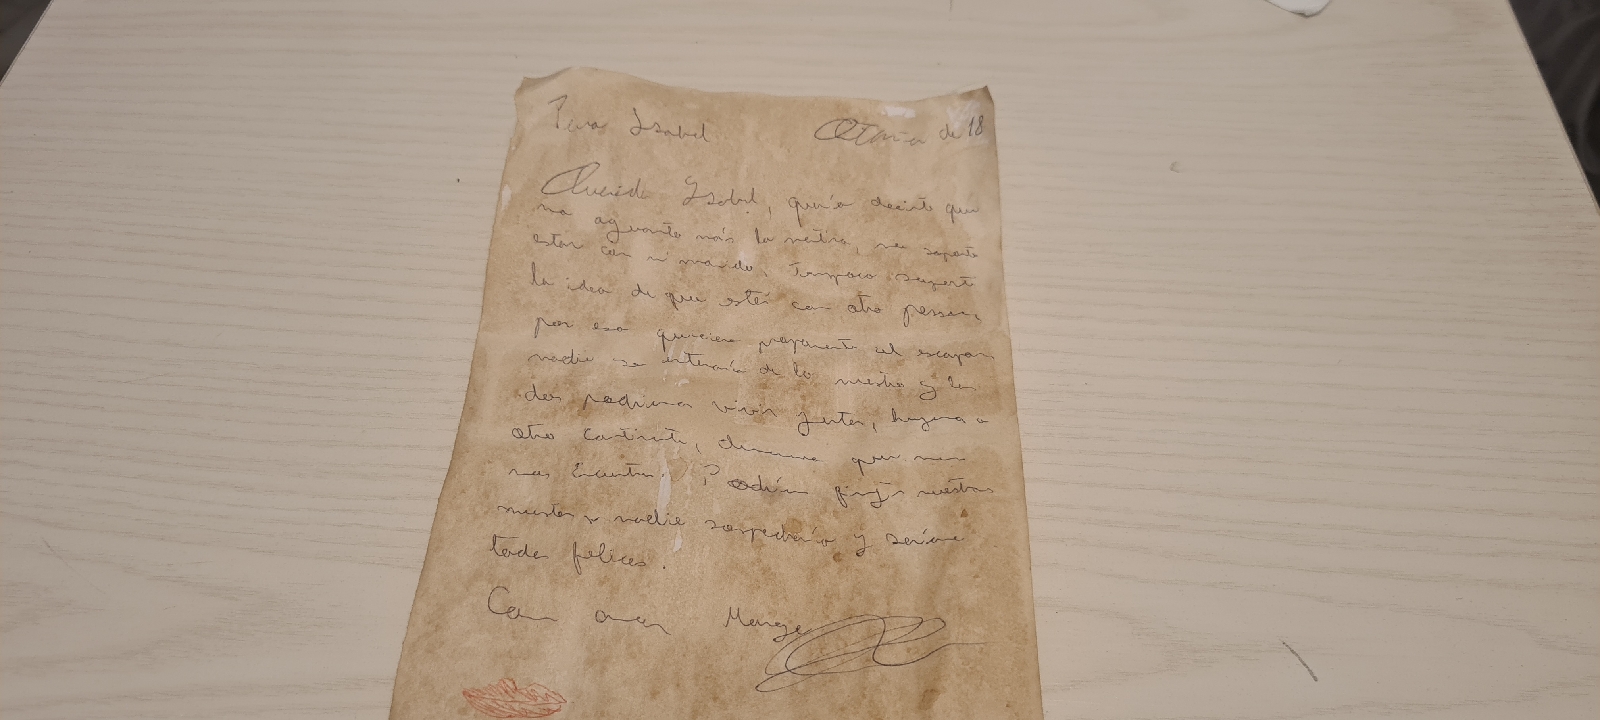 Para Isabel Otoño de 18
Querida Isabel, quería decirte que
no aguanto más la nuestro, no soporto
estar con mi marido. Tampoco soporto
la idea de que estés con otra persona,
por eso quisiera proponerte el escapar
nadie se enteraría de lo nuestro y las
dos podriamos vivir juntas, huyamos a
otro continente, que
nos encuentren. Podríamos fingir nuestras
muertes nadie sospecharía y seríamos
todos felices.
Con amor Marge